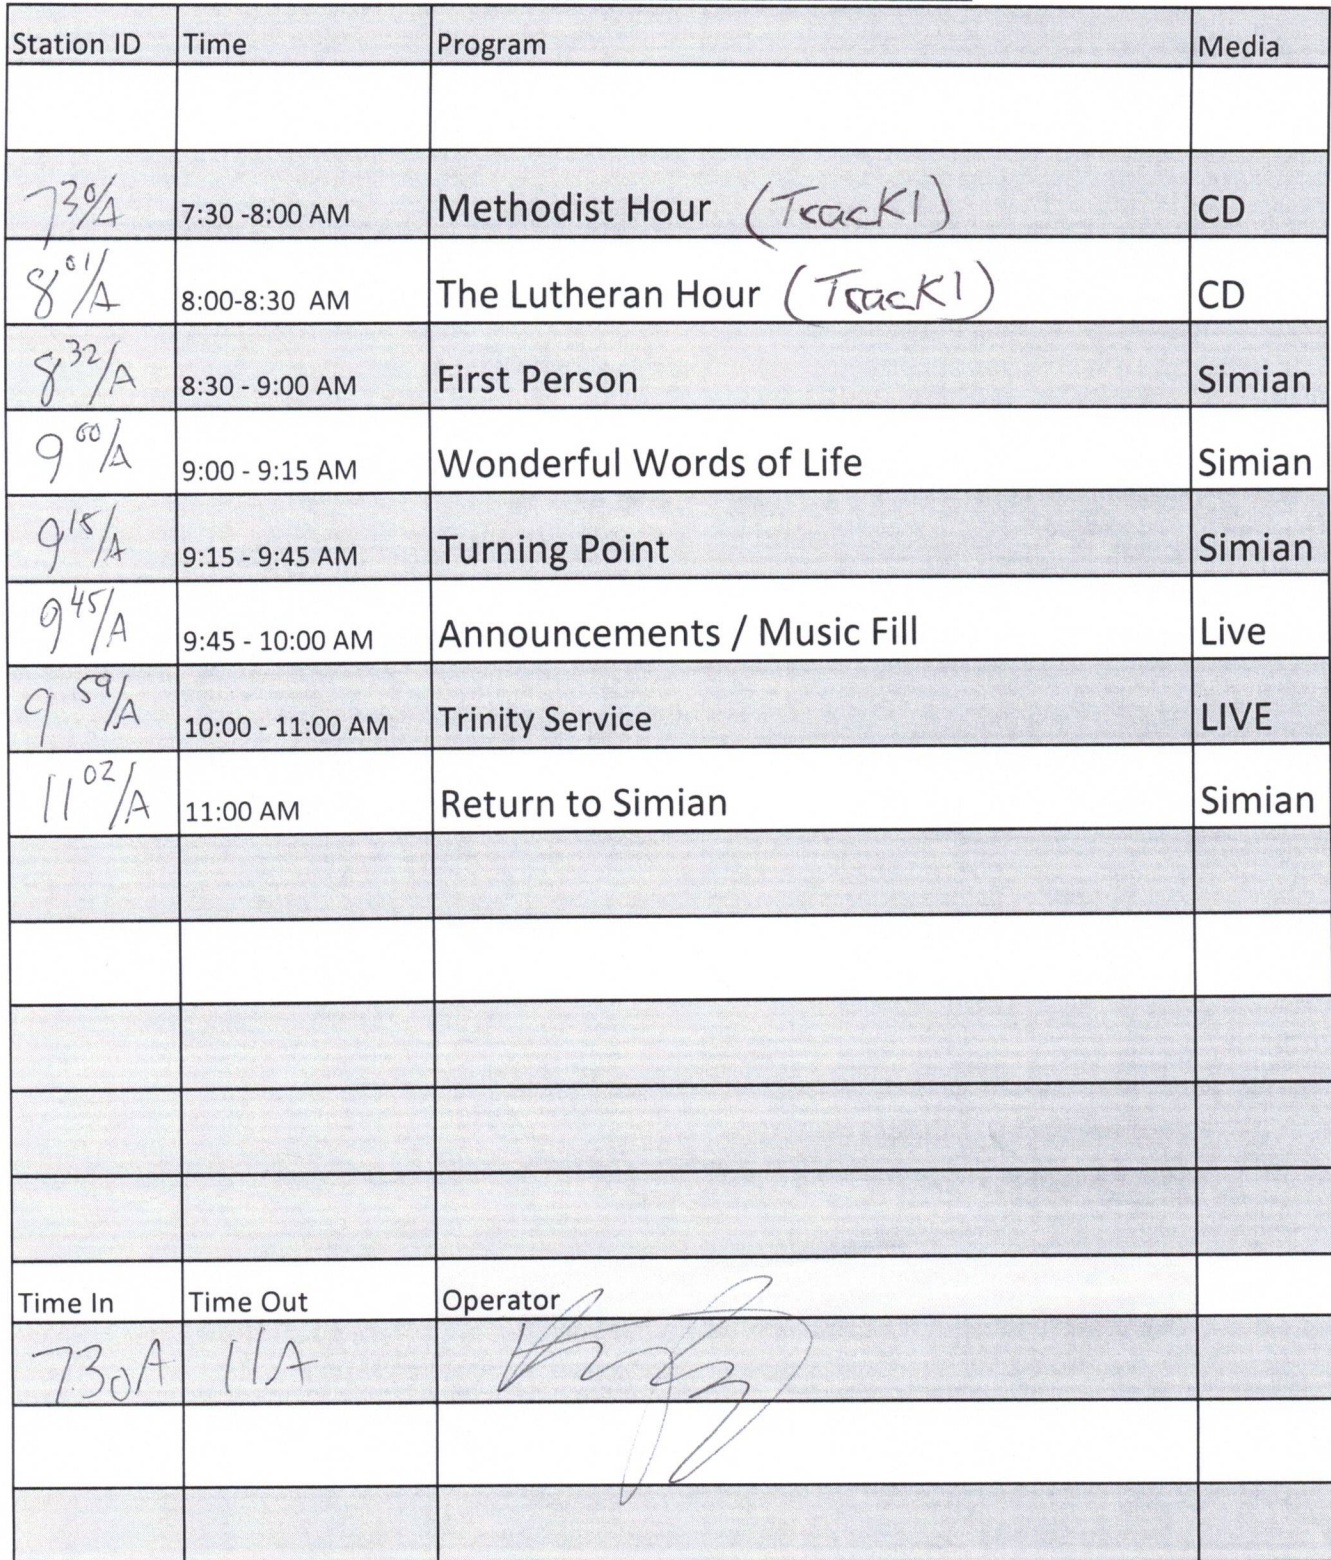 Station ID Time Program Media
7 30/A 7:30 -8:00 AM Methodist Hour (Track1) CD
8 01/A 8:00-8:30 AM The Lutheran Hour (Track1) CD
8 32/A 8:30 - 9:00 AM First Person Simian
9 00/A 9:00 - 9:15 AM Wonderful Words of Life Simian
9 15/A 9:15 - 9:45 AM Turning Point Simian
9 45/A 9:45 - 10:00 AM Announcements / Music Fill Live
9 59/A 10:00 - 11:00 AM Trinity Service LIVE
11 02/A 11:00 AM Return to Simian Simian
Time In Time Out Operator
730A 11A